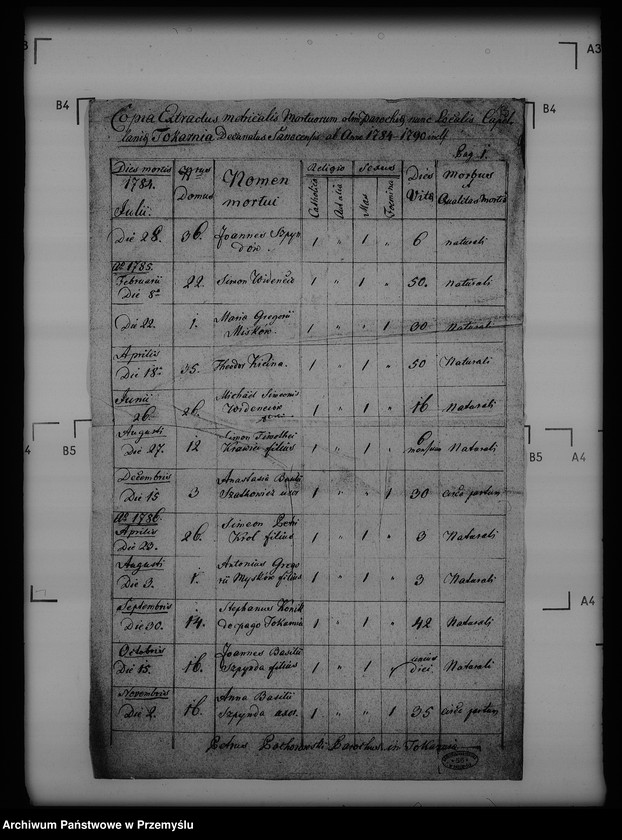 B4
A3
B4
Copia Extractus metricalis Mortuorum olim Parochiae nunc Localis Capel
laniae Tokarnia Decanatus Sanocensis ab Anno 1784 - 1790
Pag. 1.
Dies mortis 1784. Julii. Nrus Domus Nomen mortui Religio Sexus Dies Vitae Morbus Qualitas mortis
Catholica Mas Femina
Die 28. 36. Joannes Szpyn 1 " 1 " 6 naturali
dów.
Ao 1785.
Februarii 22. Simon 1 " 1 " 50. naturali
Die 8a
Die 22. 1. Maria Gregorii 1 " " 1 30 naturali
Misków.
Aprilis
Die 18a 35. Theodor 1 " 1 " 50 Naturali
Junii 26. Michael Simeonis 1 " 1 " 16 Naturali
26.
Augusti 12 Simon Timothei 1 " 1 " 6 Naturali
Die 27. Krawiec filius
Decembris 3 Anastasia Basilii 1 " " 1 30 circa partum
Die 15 Szatkowicz uxor
Ao 1786.
Aprilis 26. Simeon 1 " 1 " 3 Naturali
Die 23. Krol filius
Augusti 1. Antonius Grego 1 " 1 " 3 Naturali
Die 3. rii Mysków filius
Septembris 14. Stephanus 1 " 1 " 42 Naturali
Die 30. de pago Tokarnia
Octobris 16. Joannes Basilii 1 " 1 unius Naturali
Die 15. Szpynda filius diei
Novembris 16. Anna Basilii 1 " " 1 35 circa partum
Die 2. Szpynda uxor
Petrus Parochus in Tokarnia
A4
B5
B5
A4
A4
Archiwum Państwowe w Przemyślu